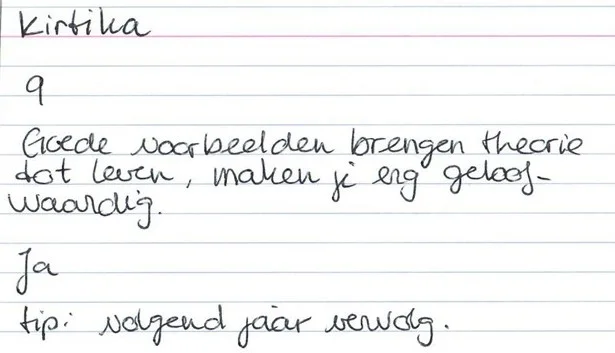 Kirtika
9
Goede voorbeelden brengen theorie
tot leven, maken je erg geloof-
waardig.
Ja
tip: volgend jaar vervolg.